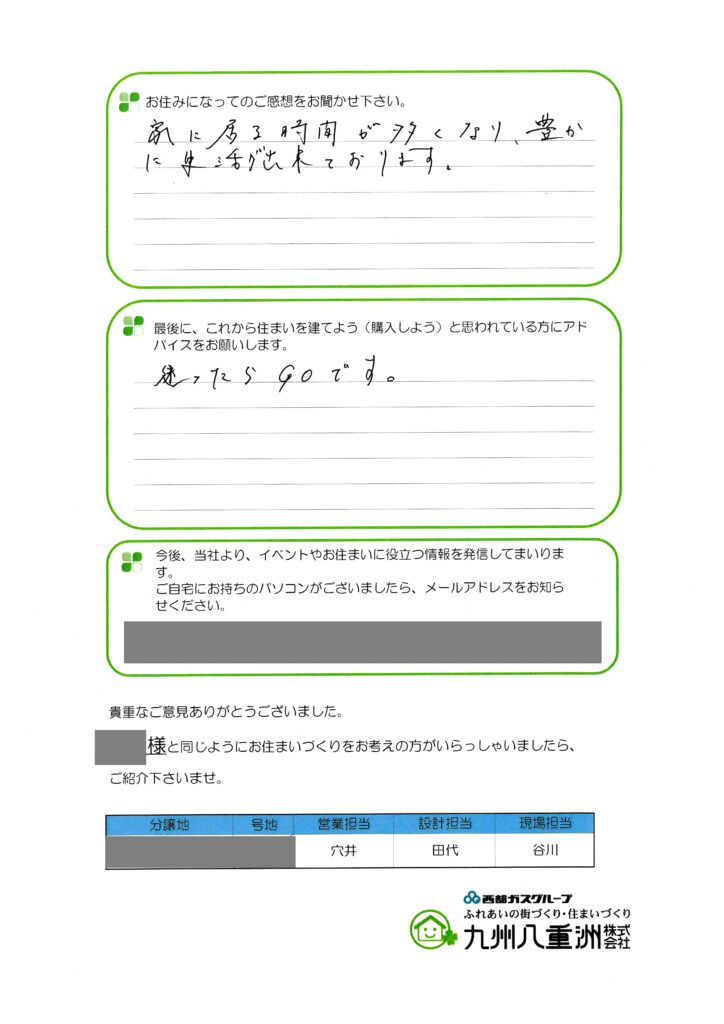 お住みになってのご感想をお聞かせ下さい。
家に居る時間が多くなり、豊か
に生活が出来ております。
最後に、これから住まいを建てよう（購入しよう）と思われている方にアド
バイスをお願いします。
迷ったらGOです。
今後、当社より、イベントやお住まいに役立つ情報を発信してまいりま
す。
ご自宅にお持ちのパソコンがございましたら、メールアドレスをお知ら
せください。
貴重なご意見ありがとうございました。
様と同じようにお住まいづくりをお考えの方がいらっしゃいましたら、
ご紹介下さいませ。
分譲地 号地 営業担当 設計担当 現場担当
穴井 田代 谷川
西部ガスグループ
ふれあいの街づくり・住まいづくり
九州八重洲株式会社